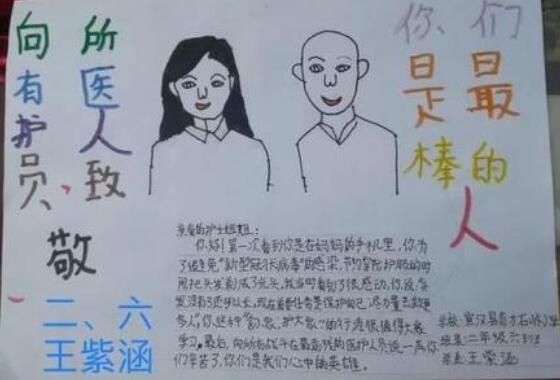 向所
有医
护人
员、致
敬
你、们
是最
棒的
人
二、六
王紫涵
亲爱的护士姐姐:
你好!第一次看到你是在妈妈的手机里,你为
了避免"新型冠状病毒"的感染,节约穿防护服的时
间把头发剃成了光头,我当时看到了很感动,你说:"头
发没有了还可以长,现在首要任务是保护自己,尽力量去救更
多人"你这种"勇敢、护大家"的行为很值得大家
学习。最后,向所有战斗在最前线的医护人员说一声"你
们辛苦了,你们是我们心中的英雄。
学校:宣汉县育才石岭小学
班级:二年级六班
姓名:王紫涵